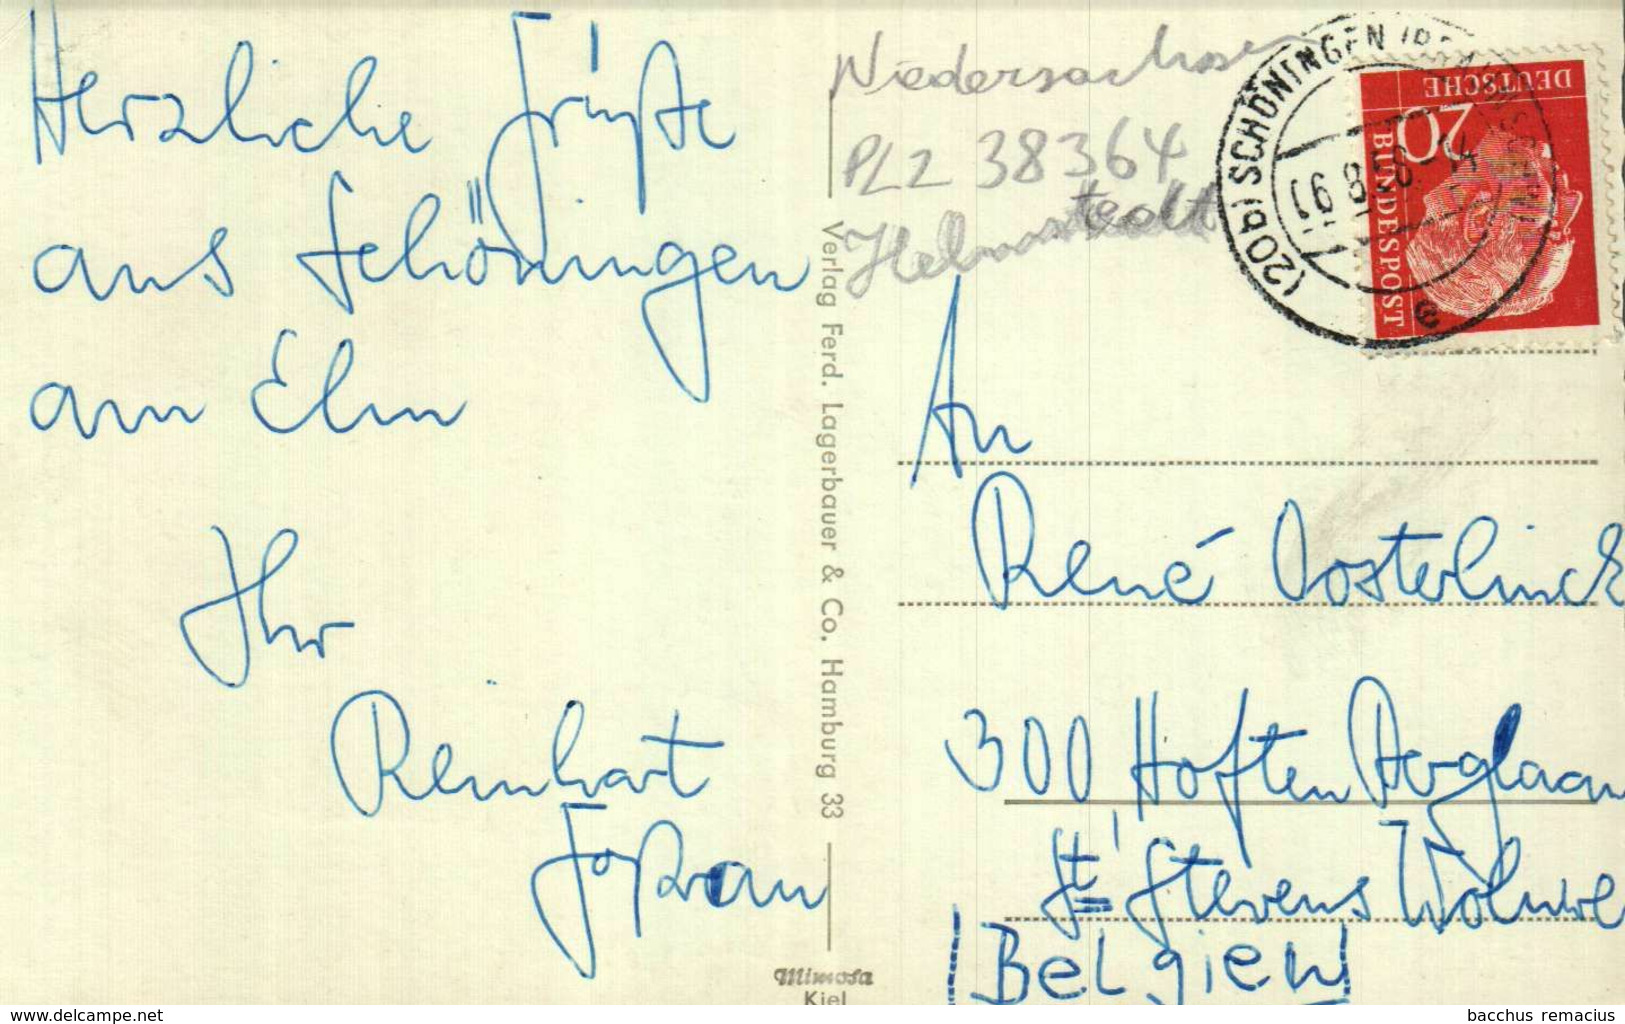 Herzliche Grüße
aus Schöningen
am Elm
Ihr
Reinhart
Verlag Ferd. Lagerbauer & Co. Hamburg 33
Mimosa
Kiel
Niedersachsen
PLZ 38364
Helmstedt
(20b) SCHÖNINGEN
DEUTSCHE
BUNDESPOST
20
An
René Oosterlinck
300 Hoften
St. Stevens Woluwe
(Belgien)
www.delcampe.net
bacchus remacius